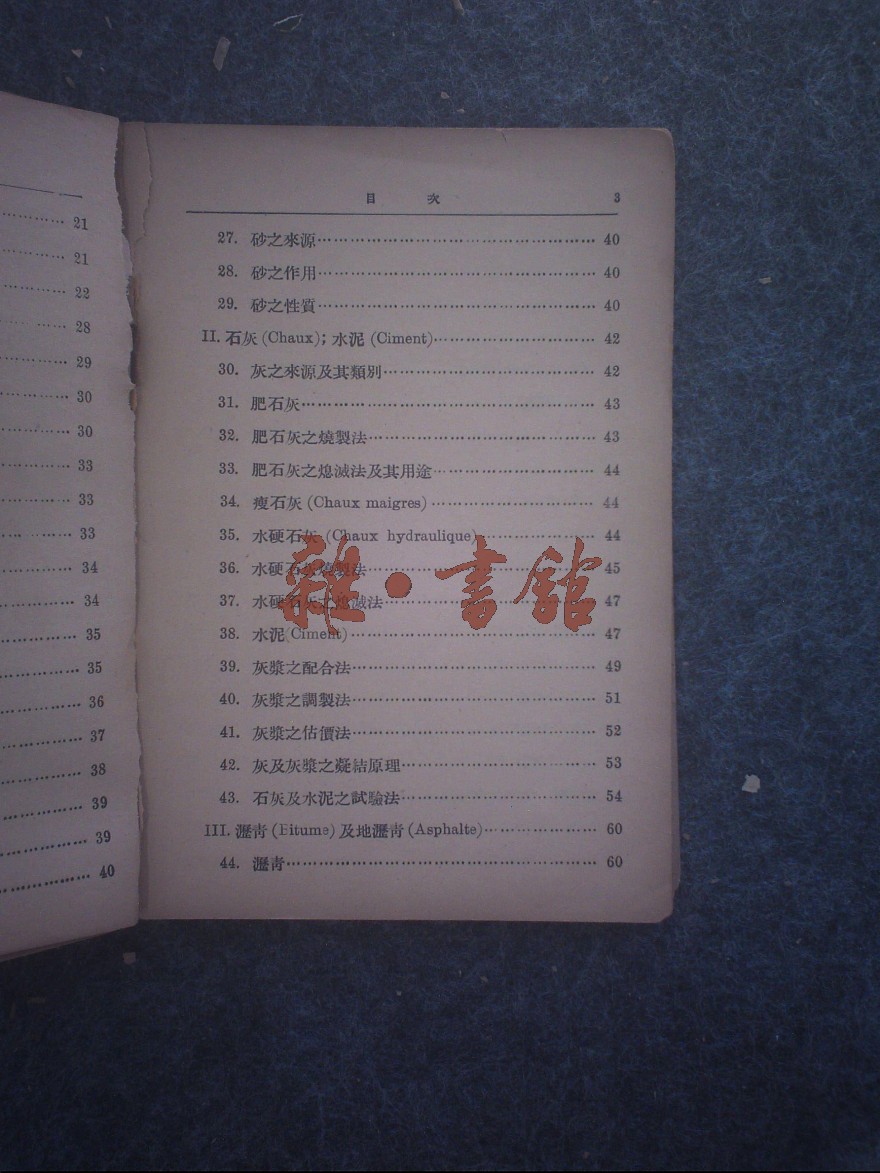 21
21
22
28
29
30
30
33
33
33
34
34
35
35
36
37
38
39
39
40
目 次 3
27. 砂之來源 40
28. 砂之作用 40
29. 砂之性質 40
II. 石灰 (Chaux); 水泥 (Ciment) 42
30. 灰之來源及其類別 42
31. 肥石灰 43
32. 肥石灰之燒製法 43
33. 肥石灰之熄滅法及其用途 44
34. 瘦石灰 (Chaux maigres) 44
35. 水硬石灰 (Chaux hydraulique) 44
36. 水硬石灰燒製法 45
37. 水硬石灰之熄滅法 47
38. 水泥 (Ciment) 47
39. 灰漿之配合法 49
40. 灰漿之調製法 51
41. 灰漿之估價法 52
42. 灰及灰漿之凝結原理 53
43. 石灰及水泥之試驗法 54
III. 瀝青 (Bitume) 及地瀝青 (Asphalte) 60
44. 瀝青 60
雜·書館